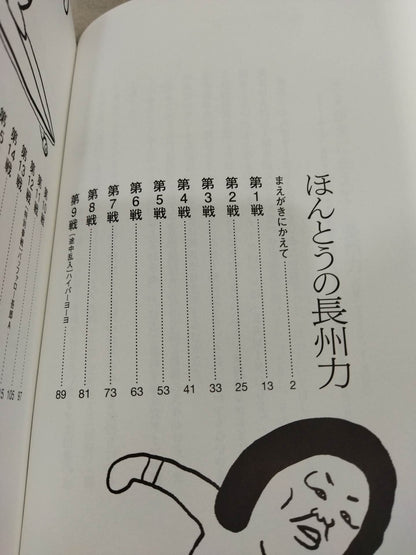 ほんとうの長州力
まえがきにかえて……2
第1戦……13
第2戦……25
第3戦……33
第4戦……41
第5戦……53
第6戦……63
第7戦……73
第8戦……81
第9戦〔途中乱入〕ハイパーヨーヨ……89
97
105